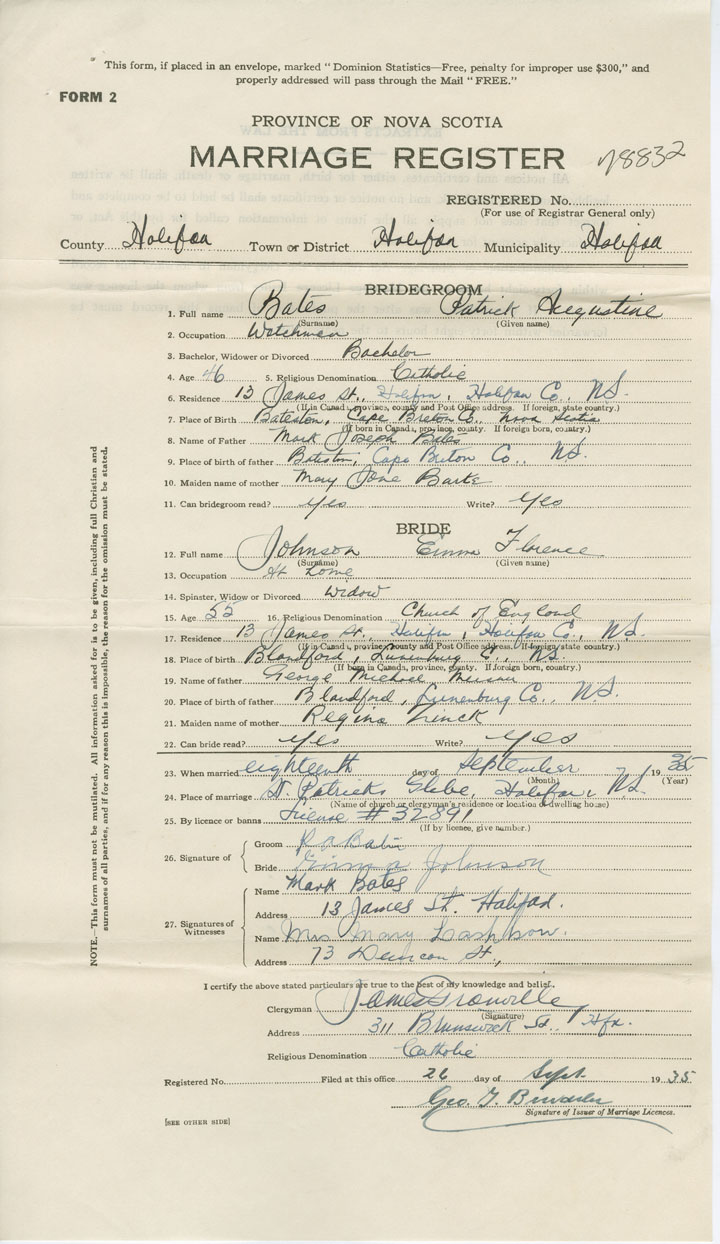 This form, if placed in an envelope, marked "Dominion Statistics—Free, penalty for improper use $300," and
properly addressed will pass through the Mail "FREE."
FORM 2
PROVINCE OF NOVA SCOTIA
MARRIAGE REGISTER
REGISTERED No.
(For use of Registrar General only)
County Halifax Town or District Halifax Municipality Halifax
BRIDEGROOM
1. Full name Bates Patrick Augustine
(Surname) (Given name)
2. Occupation Watchman
3. Bachelor, Widower or Divorced Bachelor
4. Age 46 5. Religious Denomination Catholic
6. Residence 13 James St., Halifax, Halifax Co., N.S.
(If in Canada, province, county and Post Office address. If foreign, state country.)
7. Place of Birth Bateston, Cape Breton Co., Nova Scotia
(If born in Canada, province, county. If foreign born, country.)
8. Name of Father Mark Joseph Bates
9. Place of birth of father Bateston, Cape Breton Co., N.S.
10. Maiden name of mother Mary Jane
11. Can bridegroom read? Yes Write? Yes
BRIDE
12. Full name Johnson Emma Florence
(Surname) (Given name)
13. Occupation At Home
14. Spinster, Widow or Divorced Widow
15. Age 52 16. Religious Denomination Church of England
17. Residence 13 James St., Halifax, Halifax Co., N.S.
(If in Canada, province, county and Post Office address. If foreign state country.)
18. Place of birth Blandford, Lunenburg Co., N.S.
(If born in Canada, province, county. If foreign born, country.)
19. Name of father George Michael
20. Place of birth of father Blandford, Lunenburg Co., N.S.
21. Maiden name of mother Regina Zinck
22. Can bride read? Yes Write? Yes
23. When married eighteenth day of September 1935
(Month) (Year)
24. Place of marriage St. Patricks Glebe, Halifax, N.S.
(Name of church or clergyman's residence or location of dwelling house)
25. By licence or banns License # 32891
(If by licence, give number.)
26. Signature of
Groom P. A.
Bride Emma Johnson
27. Signatures of
Witnesses
Name Mark Bates
Address 13 James St. Halifax.
Name Mrs Mary
Address 73 St.,
I certify the above stated particulars are true to the best of my knowledge and belief.
Clergyman James Granville
(Signature)
Address 311 Brunswick St., Hfx.
Religious Denomination Catholic
Registered No. Filed at this office 26 day of Sept. 1935
Geo.
Signature of Issuer of Marriage Licences.
[SEE OTHER SIDE]
NOTE.—This form must not be mutilated. All information asked for is to be given, including full Christian and
surnames of all parties, and if for any reason this is impossible, the reason for the omission must be stated.